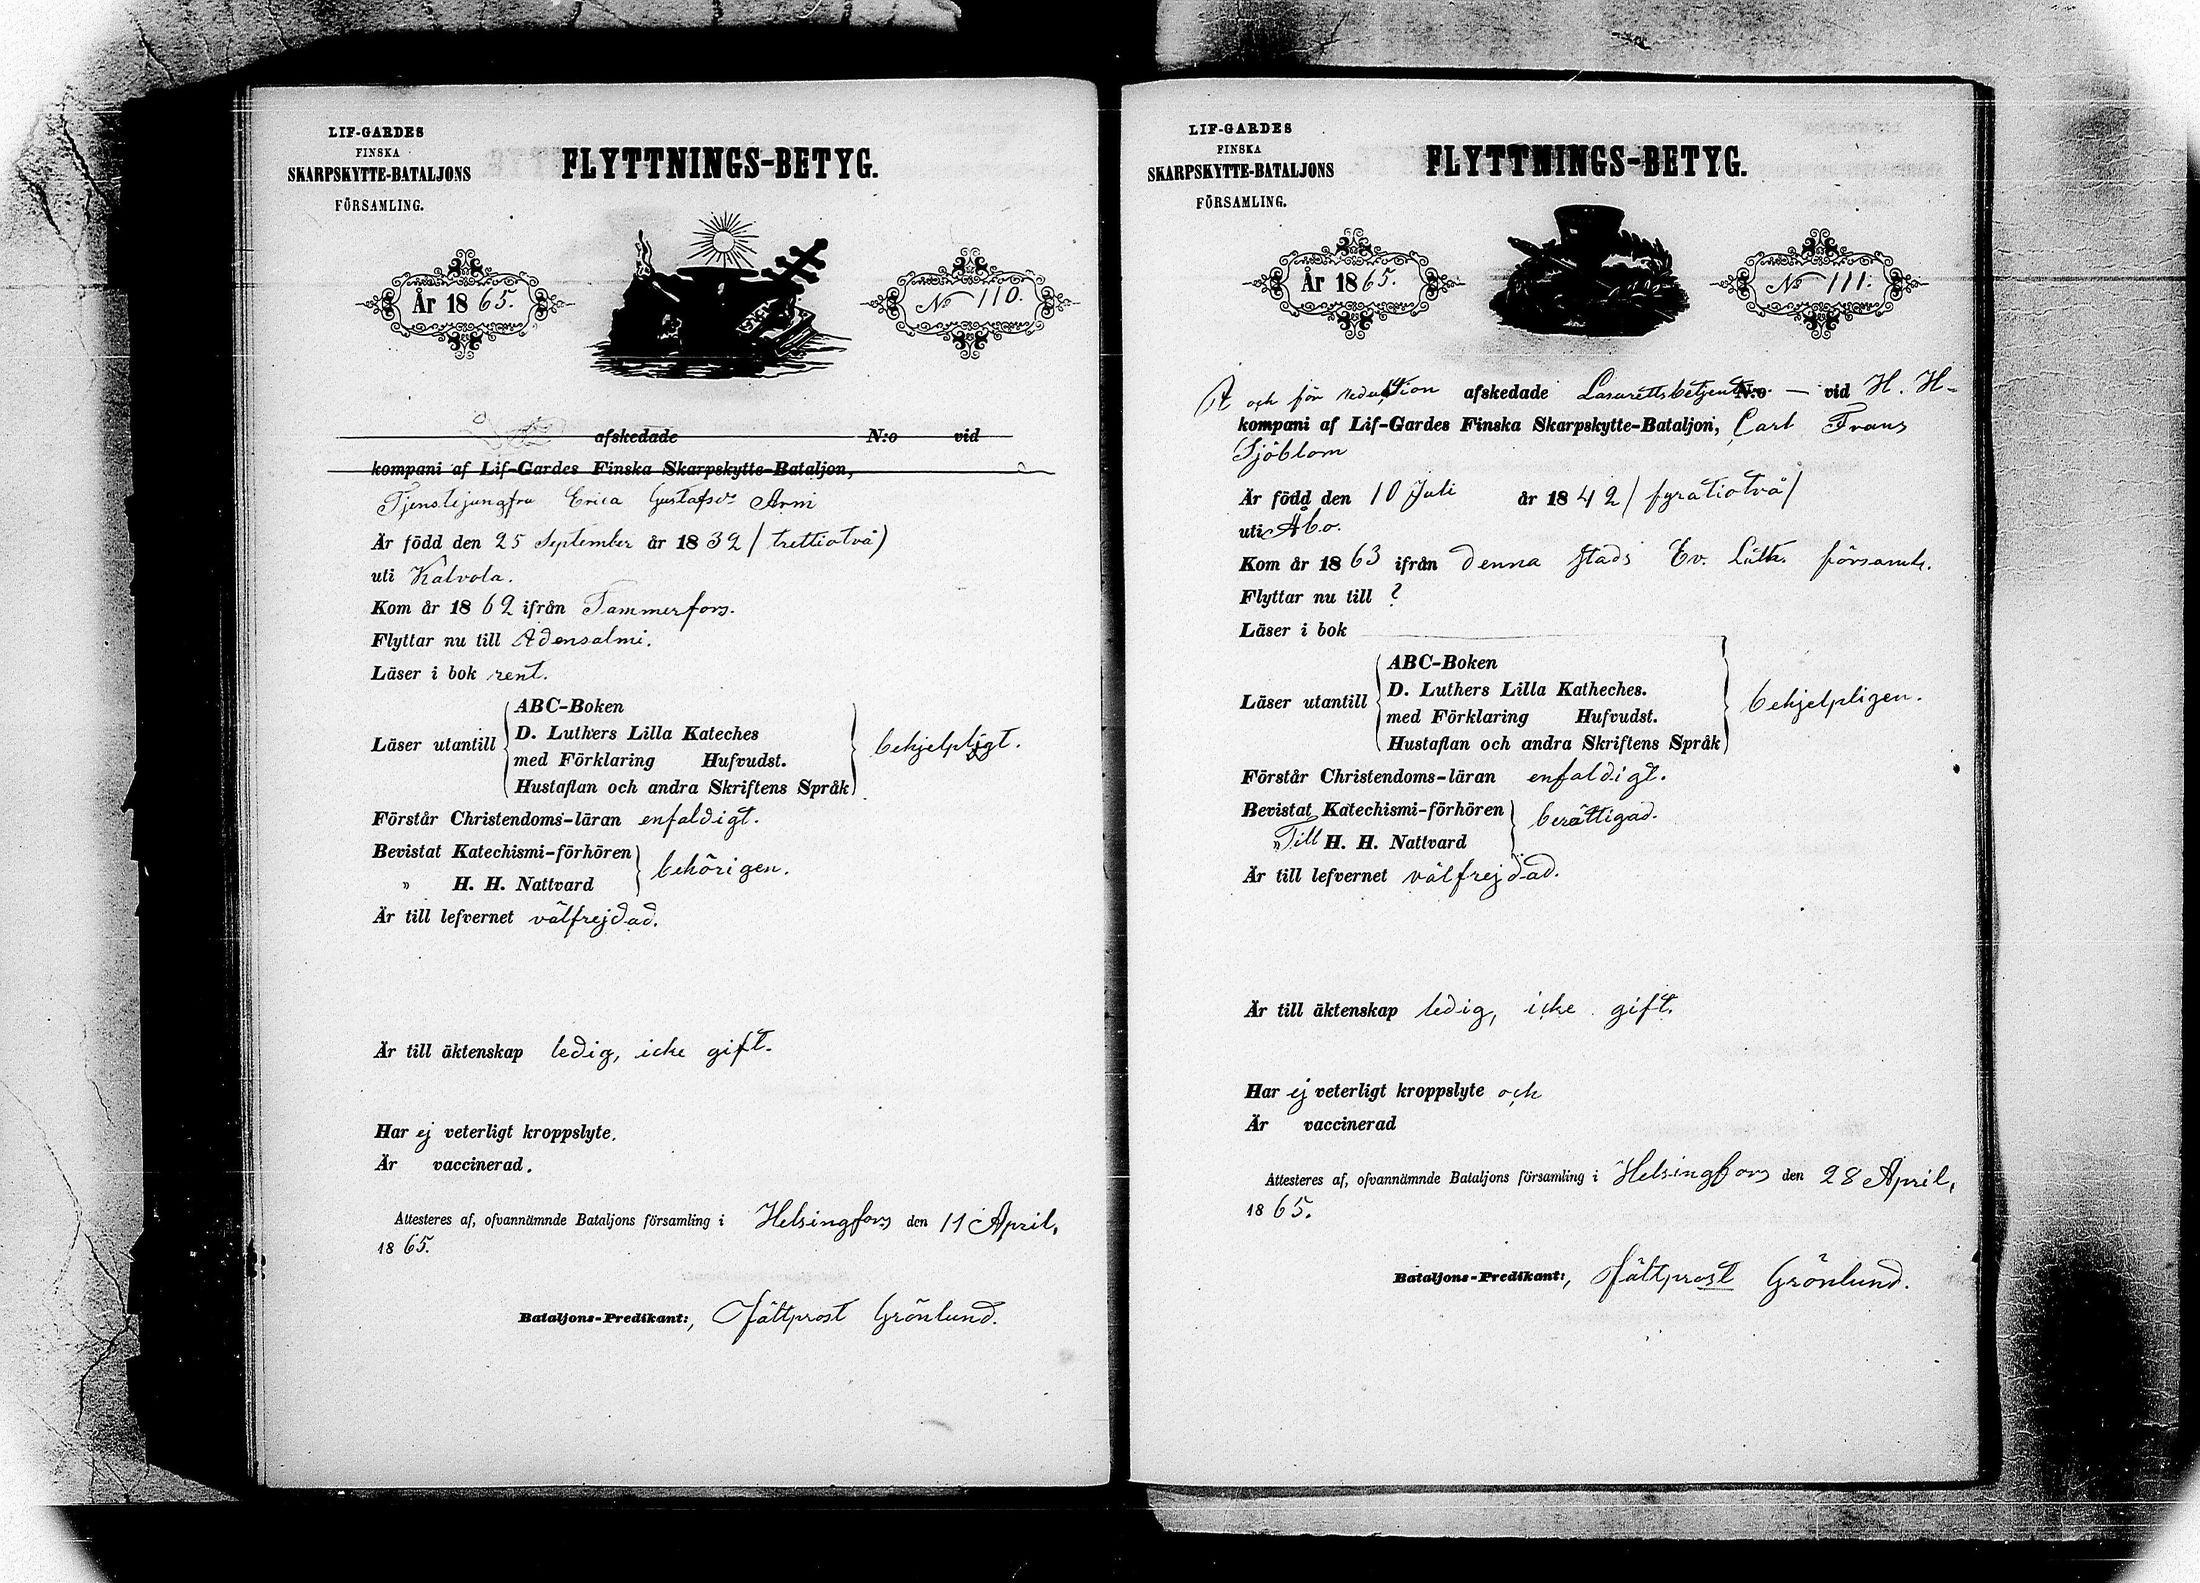 LIF-GARDES
FINSKA
SKARPSKYTTE-BATALJONS
FÖRSAMLING.
FLYTTNINGS-BETYG.
År 1865.
No 110.
afskedade N:o vid
kompani af Lif-Gardes Finska Skarpskytte-Bataljon,
Tjenstejungfru Erica Gustafsdr Arni
Är född den 25 September år 1832 / trettiotvå)
uti Kalvola.
Kom år 1862 ifrån Tammerfors.
Flyttar nu till Idensalmi.
Läser i bok rent.
Läser utantill
ABC-Boken
D. Luthers Lilla Kateches
med Förklaring Hufvudst.
Hustaflan och andra Skriftens Språk
behjelpligt.
Förstår Christendoms-läran enfaldigt.
Bevistat Katechismi-förhören
" H. H. Nattvard
behörigen.
Är till lefvernet välfrejdad.
Är till äktenskap ledig, icke gift.
Har ej veterligt kroppslyte.
Är vaccinerad.
Attesteres af, ofvannämnde Bataljons församling i Helsingfors den 11 April,
1865.
Bataljons-Predikant:, Fältprost Grönlund.
LIF-GARDES
FINSKA
SKARPSKYTTE-BATALJONS
FÖRSAMLING.
FLYTTNINGS-BETYG.
År 1865.
No 111.
och för reduktion afskedade Lasarettsbetjent N:o — vid H. H-
kompani af Lif-Gardes Finska Skarpskytte-Bataljon, Carl Frans
Sjöblom
Är född den 10 Juli år 1842 / fyratiotvå/
uti Åbo.
Kom år 1863 ifrån denna stads Ev. Luth. församl.
Flyttar nu till ?
Läser i bok
Läser utantill
ABC-Boken
D. Luthers Lilla Katheches.
med Förklaring Hufvudst.
Hustaflan och andra Skriftens Språk
behjelpligen.
Förstår Christendoms-läran enfaldigt.
Bevistat Katechismi-förhören
" Till H. H. Nattvard
berättigad.
Är till lefvernet välfrejdad.
Är till äktenskap ledig, icke gift.
Har ej veterligt kroppslyte och
Är vaccinerad
Attesteres af, ofvannämnde Bataljons församling i Helsingfors den 28 April,
1865.
Bataljons-Predikant:, Fältprost Grönlund.